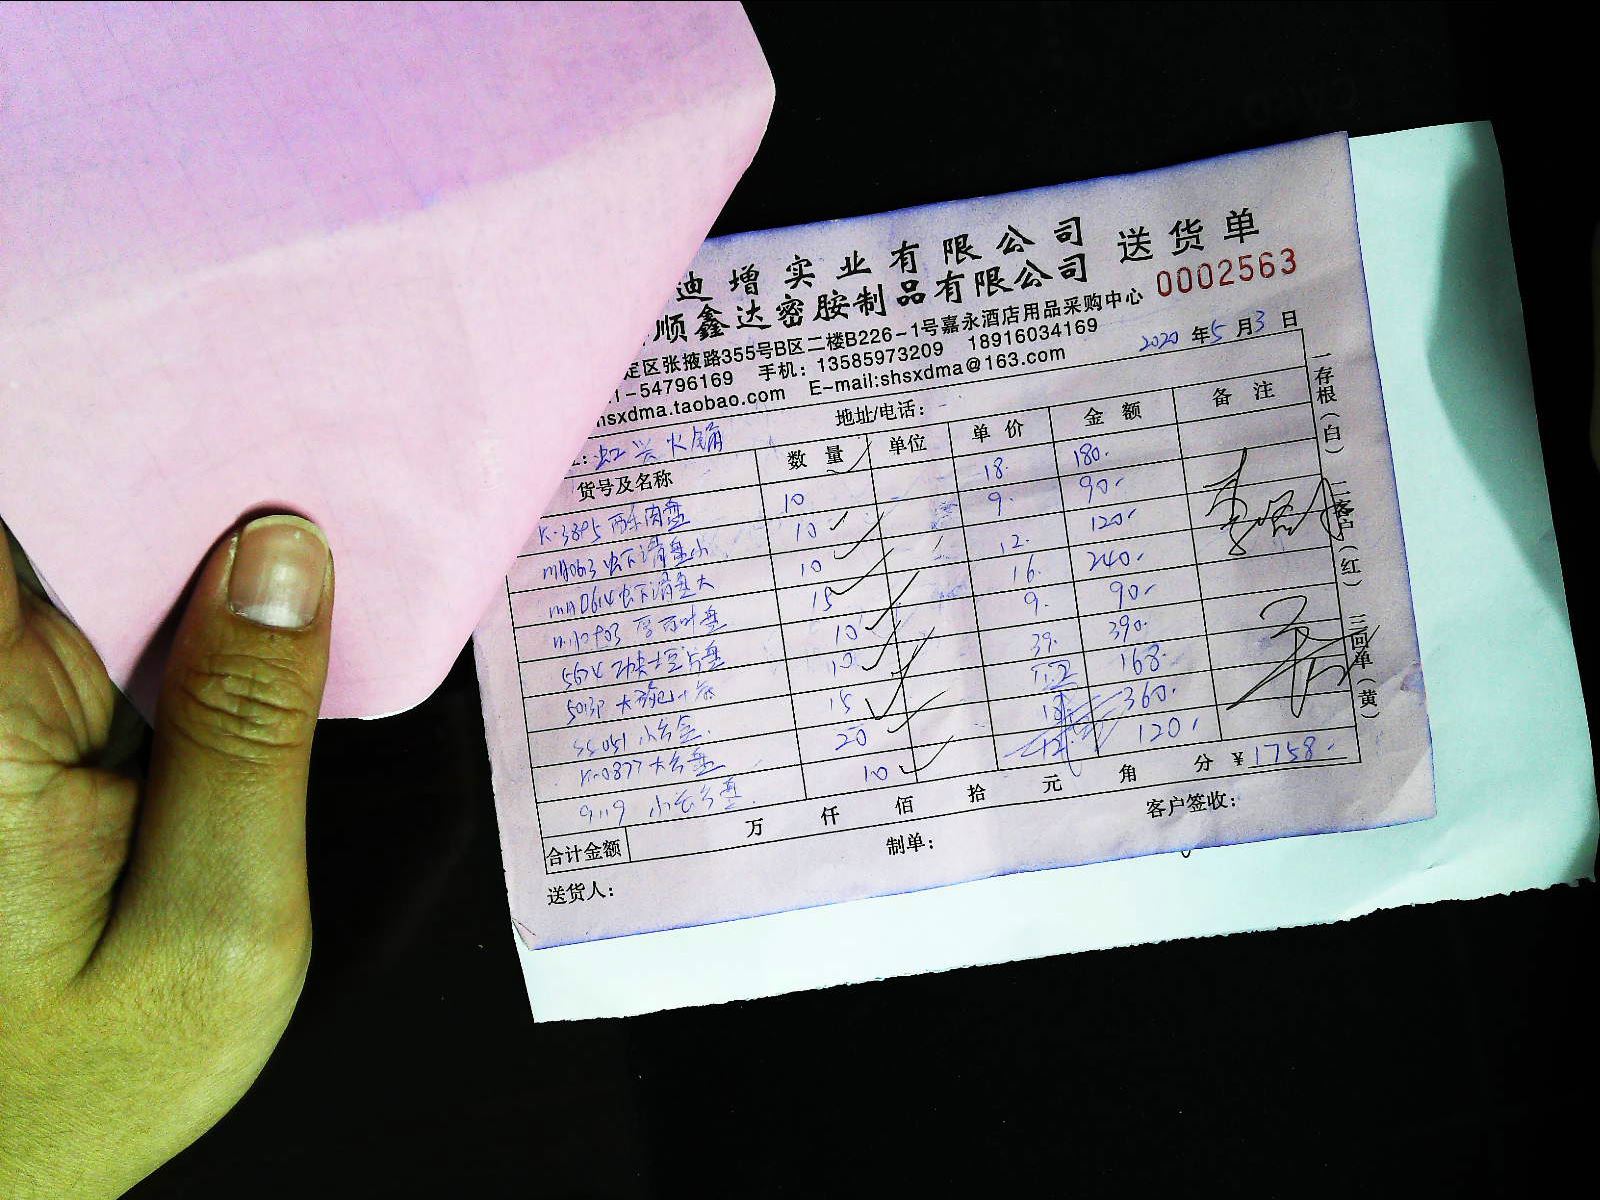 迪增实业有限公司 送货单
顺鑫达密胺制品有限公司 0002563
定区张掖路355号B区二楼B226-1号嘉永酒店用品采购中心
1-54796169 手机：13585973209 18916034169
hsxdma.taobao.com E-mail:shsxdma@163.com
2020 年 5 月 3 日
虹兴火锅 地址/电话：
货号及名称 数量 单位 单价 金额 备注
K-3895 酥肉盘 10 18. 180.
MA0613 虾滑盘小 10 9. 90.
MA0614 虾滑盘大 10 12. 120.
百叶盘 15 16. 240.
5674 功夫土豆片盘 10 9. 90.
10 39. 390.
15 168.
K-0877 20 18. 360.
10 12. 120.
合计金额 万 仟 佰 拾 元 角 分 ¥1758.
送货人： 制单： 客户签收：
一存根（白） 二客户（红） 三回单（黄）